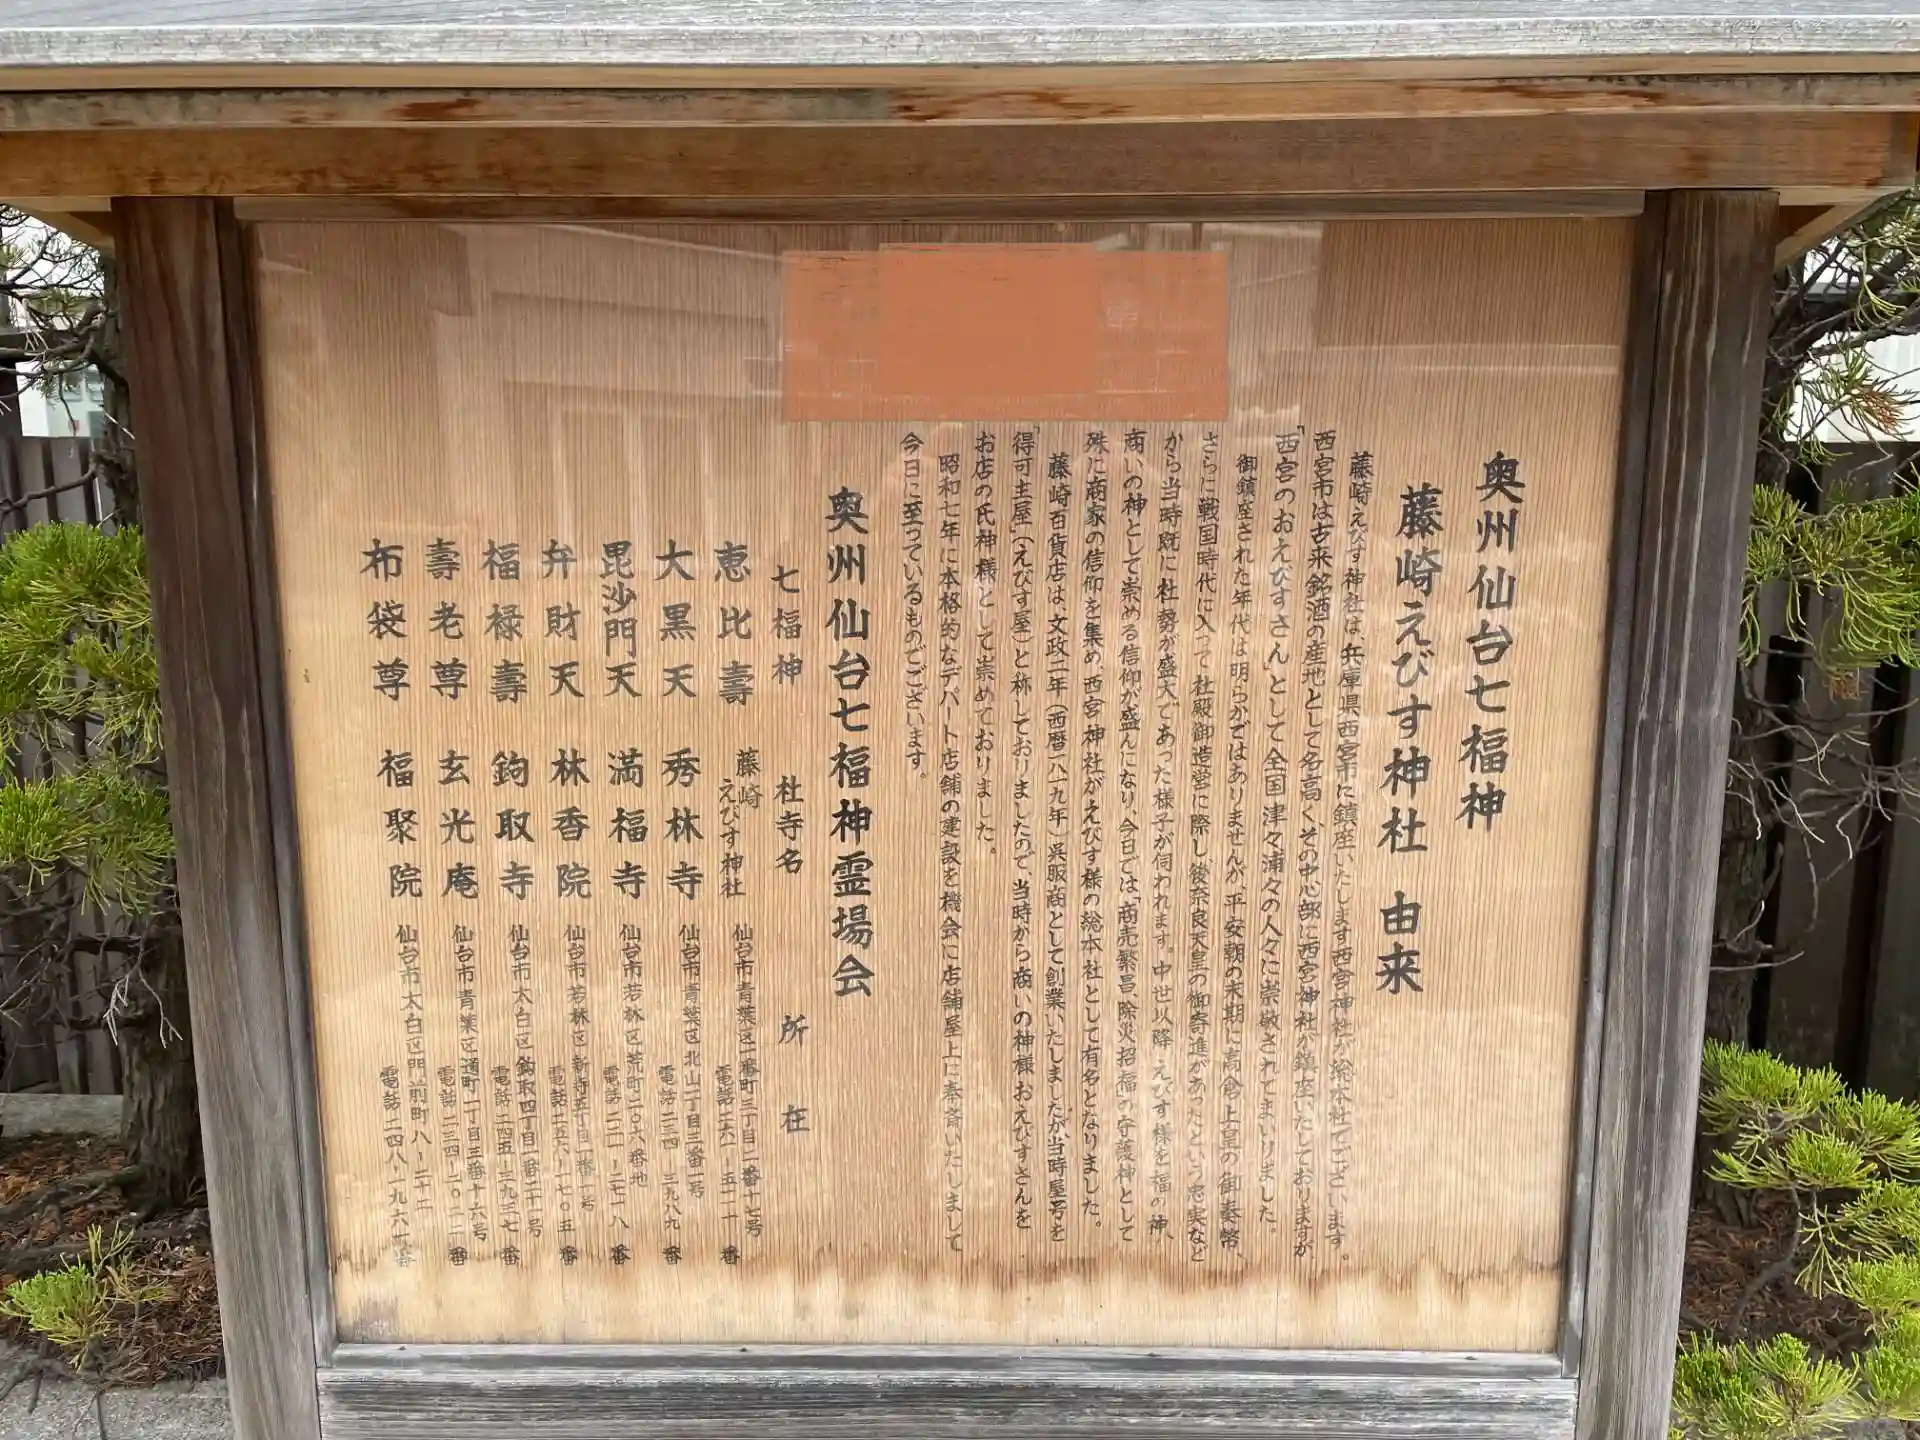 奥州仙台七福神
藤崎えびす神社 由来
藤崎えびす神社は、兵庫県西宮市に鎮座いたします西宮神社が総本社でございます。
西宮市は古来銘酒の産地として名高く、その中心部に西宮神社が鎮座いたしておりますが、
「西宮のおえびすさん」として全国津々浦々の人々に崇敬されてまいりました。
御鎮座された年代は明らかではありませんが、平安朝の末期に高倉上皇の御奉幣、
さらに戦国時代に入って社殿御造営に際し、後奈良天皇の御寄進があったという忠実など
から当時既に社勢が盛大であった様子が伺われます。中世以降えびす様を福の神、
商いの神として崇める信仰が盛んになり、今日では「商売繁昌、除災招福」の守護神として
殊に商家の信仰を集め、西宮神社がえびす様の総本社として有名となりました。
藤崎百貨店は、文政二年(西暦一八一九年)呉服商として創業いたしましたが、当時屋号を
「得可主屋」(えびす屋)と称しておりましたので、当時から商いの神様おえびすさんを
お店の氏神様として崇めておりました。
昭和七年に本格的なデパート店舗の建設を機会に店舗屋上に奉斎いたしまして
今日に至っているものでございます。
奥州仙台七福神霊場会
七福神 社寺名 所在
恵比壽 藤崎えびす神社 仙台市青葉区一番町三丁目二番十七号
電話二六一-五一一一番
大黒天 秀林寺 仙台市青葉区北山一丁目三番一号
電話二三四-三九八九番
毘沙門天 満福寺 仙台市若林区荒町二〇六番地
電話二二一-二七一八番
弁財天 林香院 仙台市若林区新寺五丁目一番一号
電話二五六-一七〇五番
福禄壽 鉤取寺 仙台市太白区鉤取四丁目一番二十一号
電話二四五-三九三七番
壽老尊 玄光庵 仙台市青葉区通町一丁目三番十六号
電話二三四-二〇二二番
布袋尊 福聚院 仙台市太白区門前町八-二十二
電話二四八-一九六一番